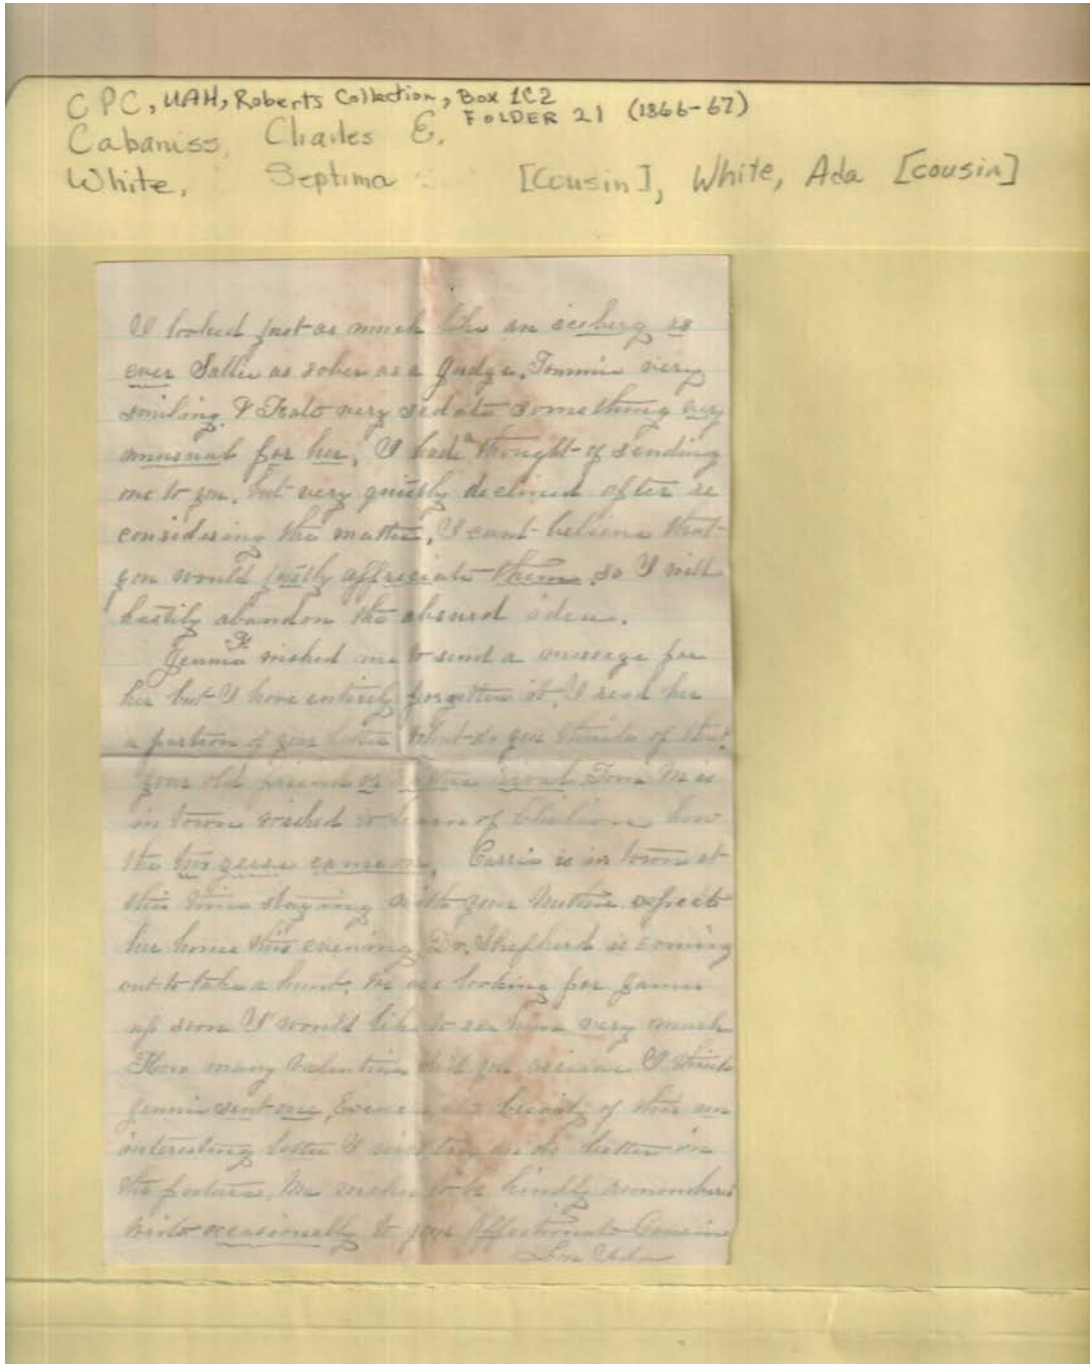 CPC, UAH, Roberts Collection, Box 1C2
FOLDER 21 (1866-67)
Cabaniss, Charles E.
White, Septima [Cousin], White, Ada [cousin]
I looked just as much like an iceberg as
ever Sallie as sober as a Judge, Tommie very
smiling, & Kate very sedate something very
unusual for her, I had a thought of sending
one to you, but very quietly declined after re
considering the matter, I cant believe that
you would justly appreciate them, so I will
hastily abandon the absurd idea.
Jennie wished me to send a message for
her but I have entirely forgotten it, I read her
a portion of your letter what do you think of that,
your old friend or rival Tom is
in town wished to learn of how
the two geese came on, Carrie is in town at
this time staying with your Mother expect
her home this evening Dr. Shepherd is coming
out to take a hunt. We are looking for James
up soon I would like to see him very much
How many valentines did you receive I think
Jennie sent one, Excuse the brevity of this un
interesting letter I will try an do better in
the future, Ma wishes to be kindly remembered
write occasionally to your affectionate Cousin
Ada